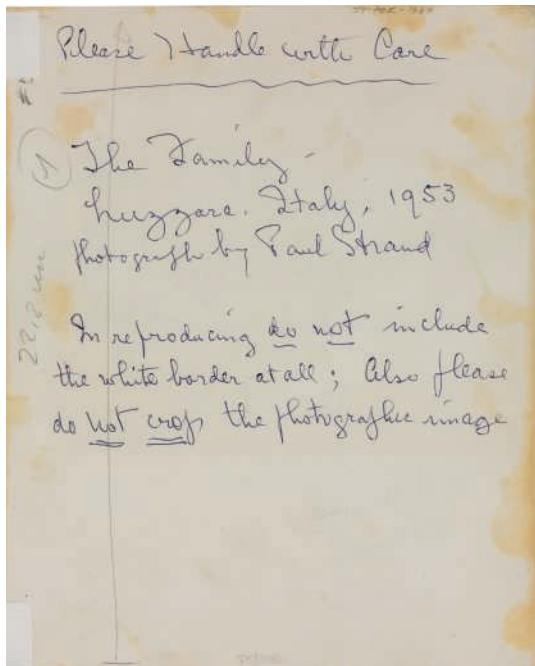 Please Handle with Care
The Family -
Luzzara. Italy, 1953
photograph by Paul Strand
In reproducing do not include
the white border at all; Also please
do not crop the photographic image
22,2 cm